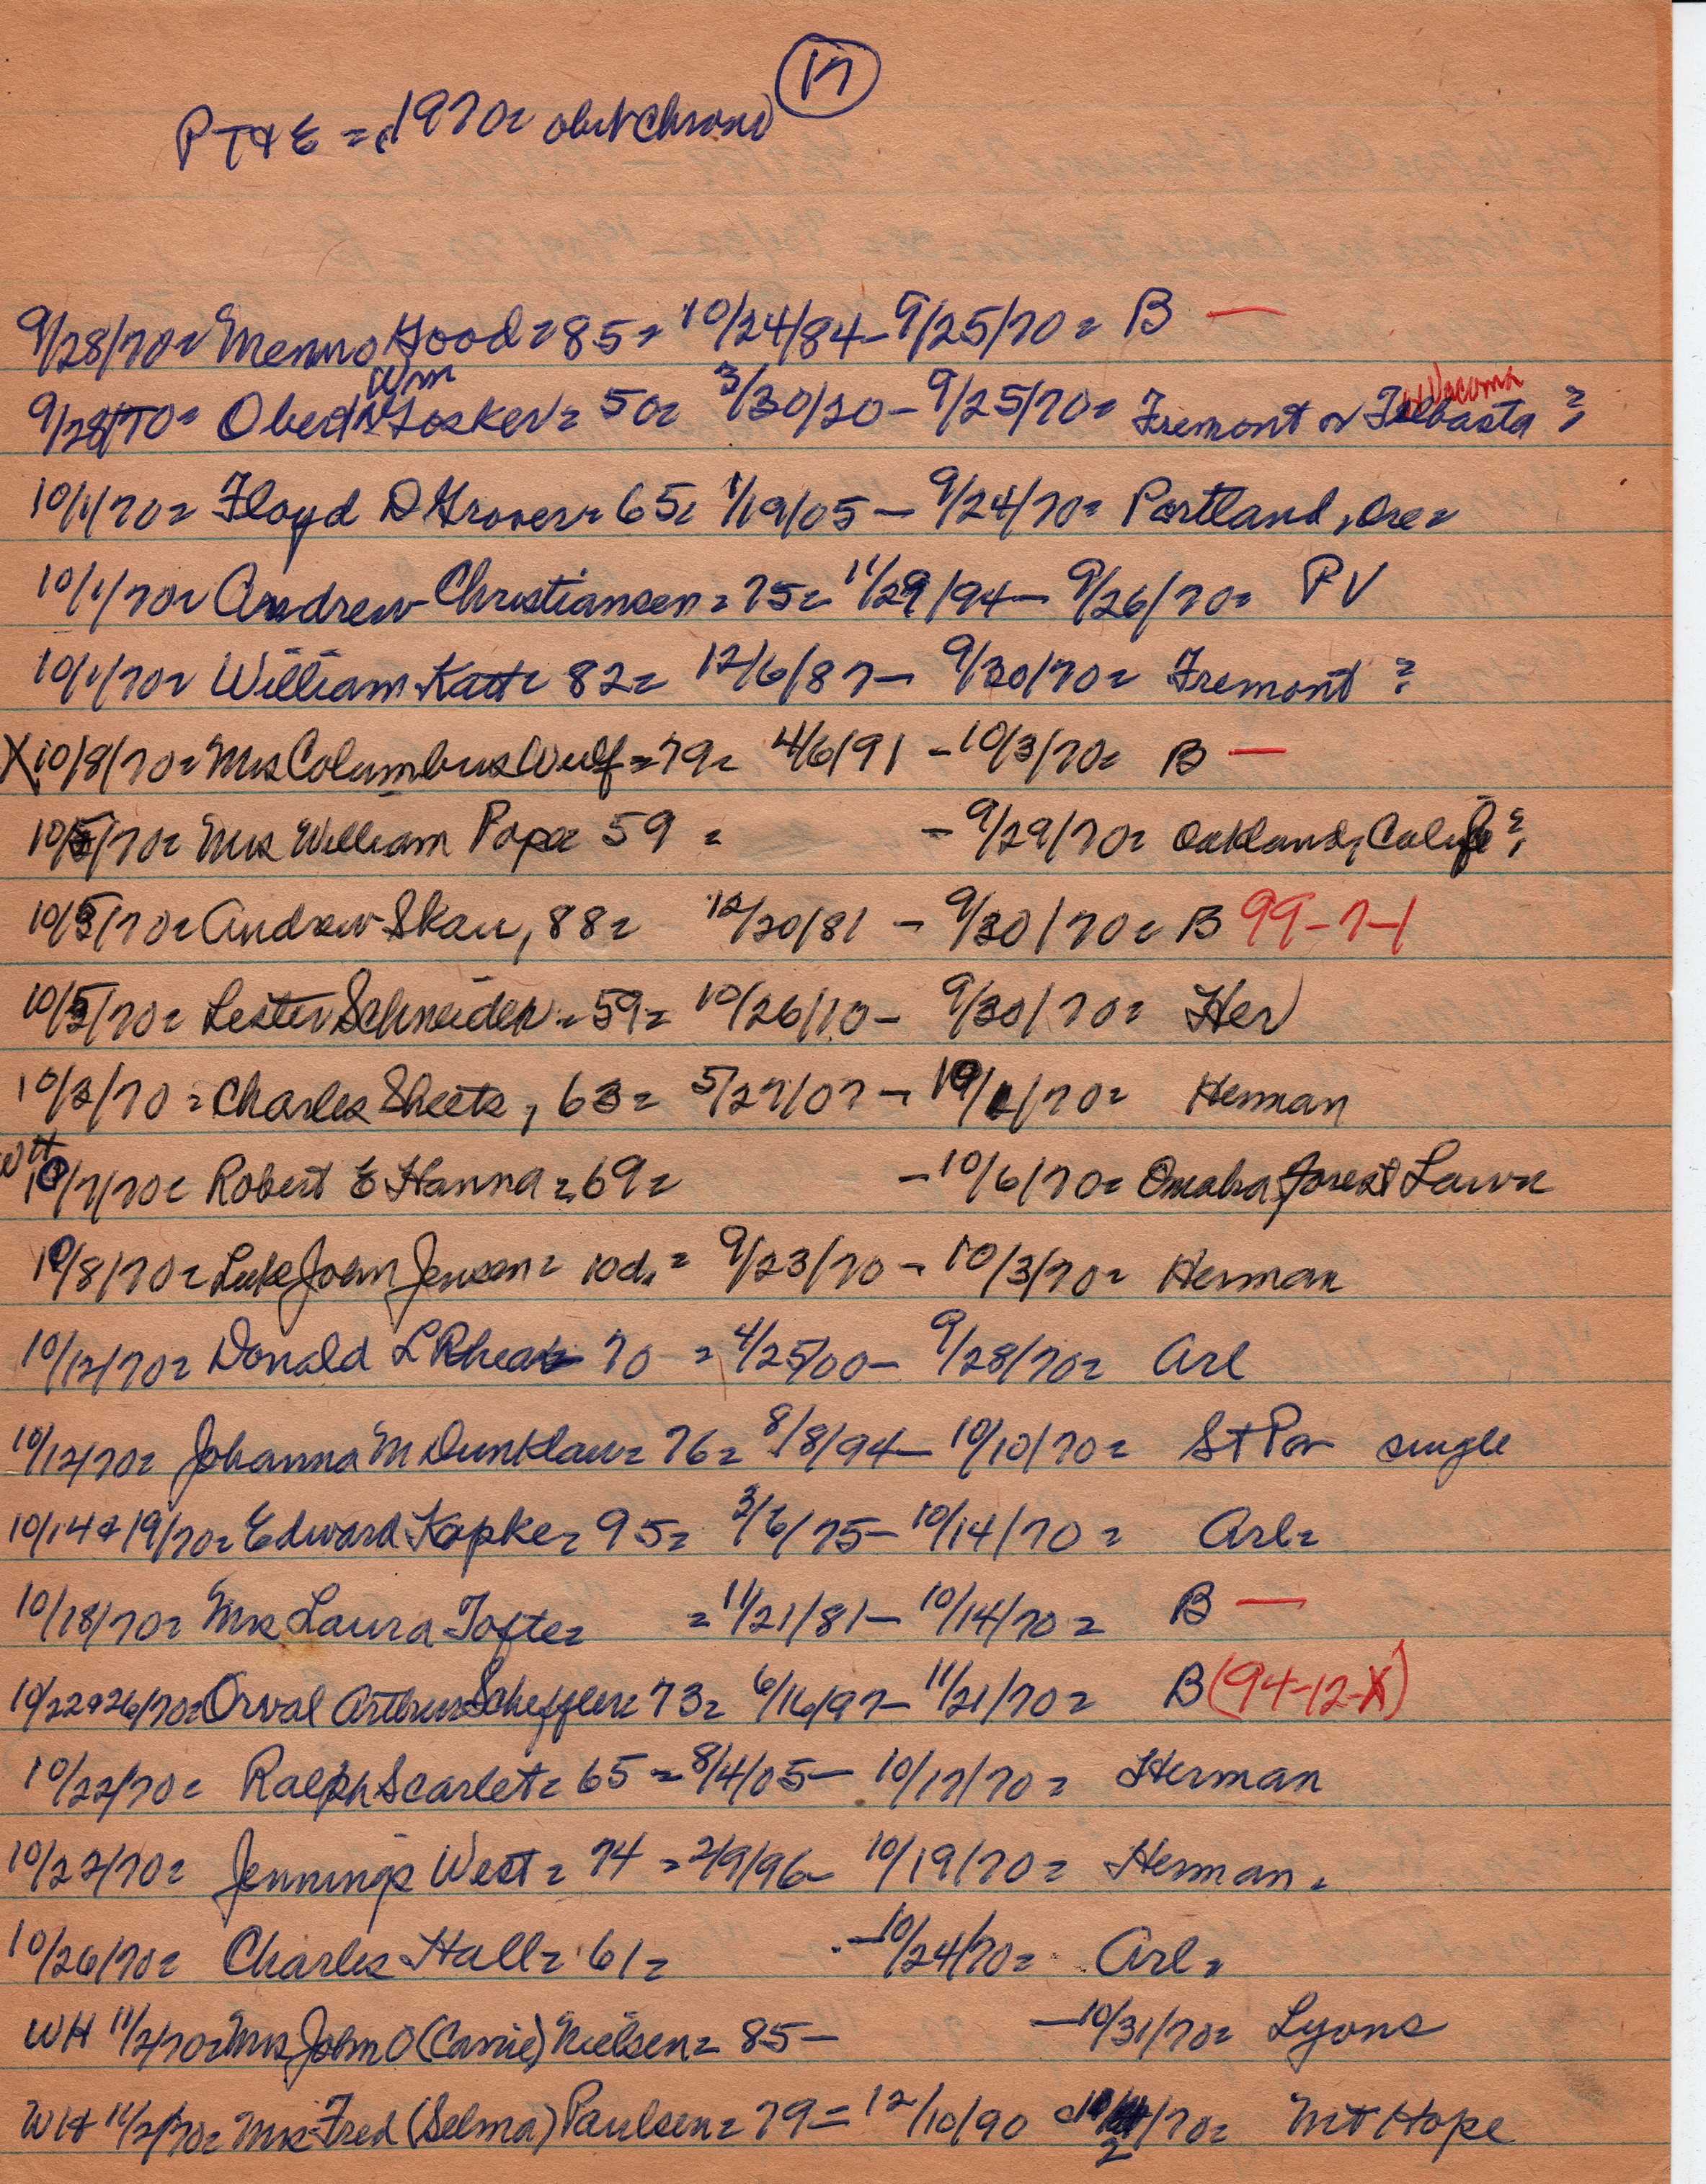 17
PT & E = 1970= obit chrono
9/28/70= Menno Hood = 85= 10/24/84 - 9/25/70= B —
Wm
9/28/70= Obert Fosker = 50= 3/30/20 - 9/25/70= Fremont or ?
10/1/70= Floyd D Grover= 65= 1/19/05 - 9/24/70= Portland, Ore=
10/1/70= Andrew Christiansen = 75= 11/29/94 - 9/26/70= PV
10/1/70= William Katt= 82= 12/6/87 - 9/30/70= Fremont ?
X 10/8/70= Mrs Columbus Wulf = 79= 4/6/91 - 10/3/70= B —
10/5/70= Mrs William Pope 59 = - 9/29/70= Oakland, Calif ?
10/5/70= Andrew Skau, 88= 12/20/81 - 9/30/70= B 99-7-1
10/5/70= Lester Schneider = 59= 10/26/10 - 9/30/70= Her
10/3/70 = Charles Sheets, 63= 5/27/07 - 10/1/70= Herman
WH
10/7/70= Robert E Hanna = 69= - 10/6/70= Omaha Forest Lawn
10/8/70= Luke John Jensen= 10 ds = 9/23/70 - 10/3/70= Herman
10/12/70= Donald L Rhea 70 = 4/25/00 - 9/28/70= Arl
10/12/70= Johanna M Dunklau= 76= 8/8/94 - 10/10/70= St Pa single
10/14 & 19/70= Edward Kopke= 95= 3/6/75 - 10/14/70 = Arl=
10/18/70= Mrs Laura Tofte= = 11/21/81 - 10/14/70 = B —
10/22 & 26/70= Orval Arthur Scheffler= 73= 6/16/97 - 11/21/70 = B (94-12-X)
10/22/70= Ralph Scarlet= 65 = 8/4/05 - 10/17/70 = Herman
10/22/70= Jennings West = 74 = 2/9/96 - 10/19/70 = Herman.
10/26/70= Charles Hall= 61= - 10/24/70= Arl=
WH 11/2/70= Mrs John O (Carrie) Nielsen= 85 - - 10/31/70= Lyons
WH 11/2/70= Mrs Fred (Selma) Paulsen= 79 = 12/10/90 /70= Mt Hope
2